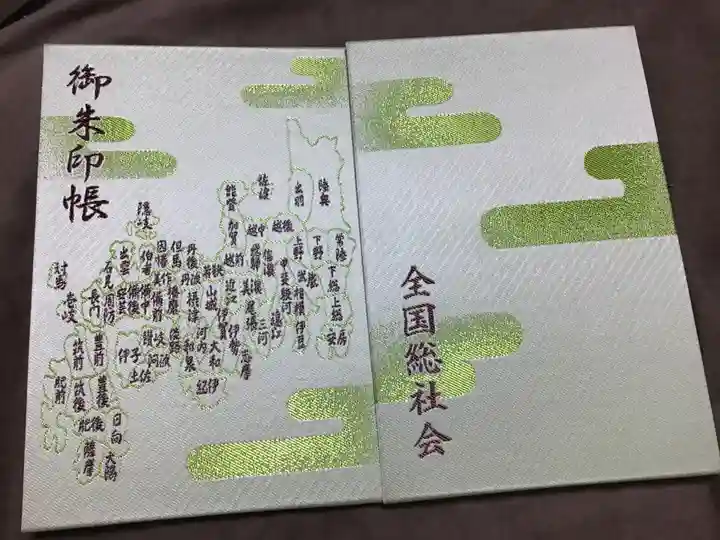 御朱印帳
陸奥
出羽
佐渡
能登
越後
越中
加賀
越前
常陸
下野
上野
下総
上総
安房
武蔵
相模
伊豆
甲斐
駿河
信濃
飛騨
美濃
遠江
三河
尾張
志摩
伊勢
伊賀
近江
若狭
山城
大和
河内
和泉
紀伊
摂津
丹波
丹後
但馬
播磨
淡路
因幡
美作
備前
備中
備後
伯耆
出雲
隠岐
石見
安芸
周防
長門
讃岐
阿波
土佐
伊予
対馬
壱岐
筑前
筑後
豊前
豊後
肥前
肥後
日向
大隅
薩摩
全国総社会